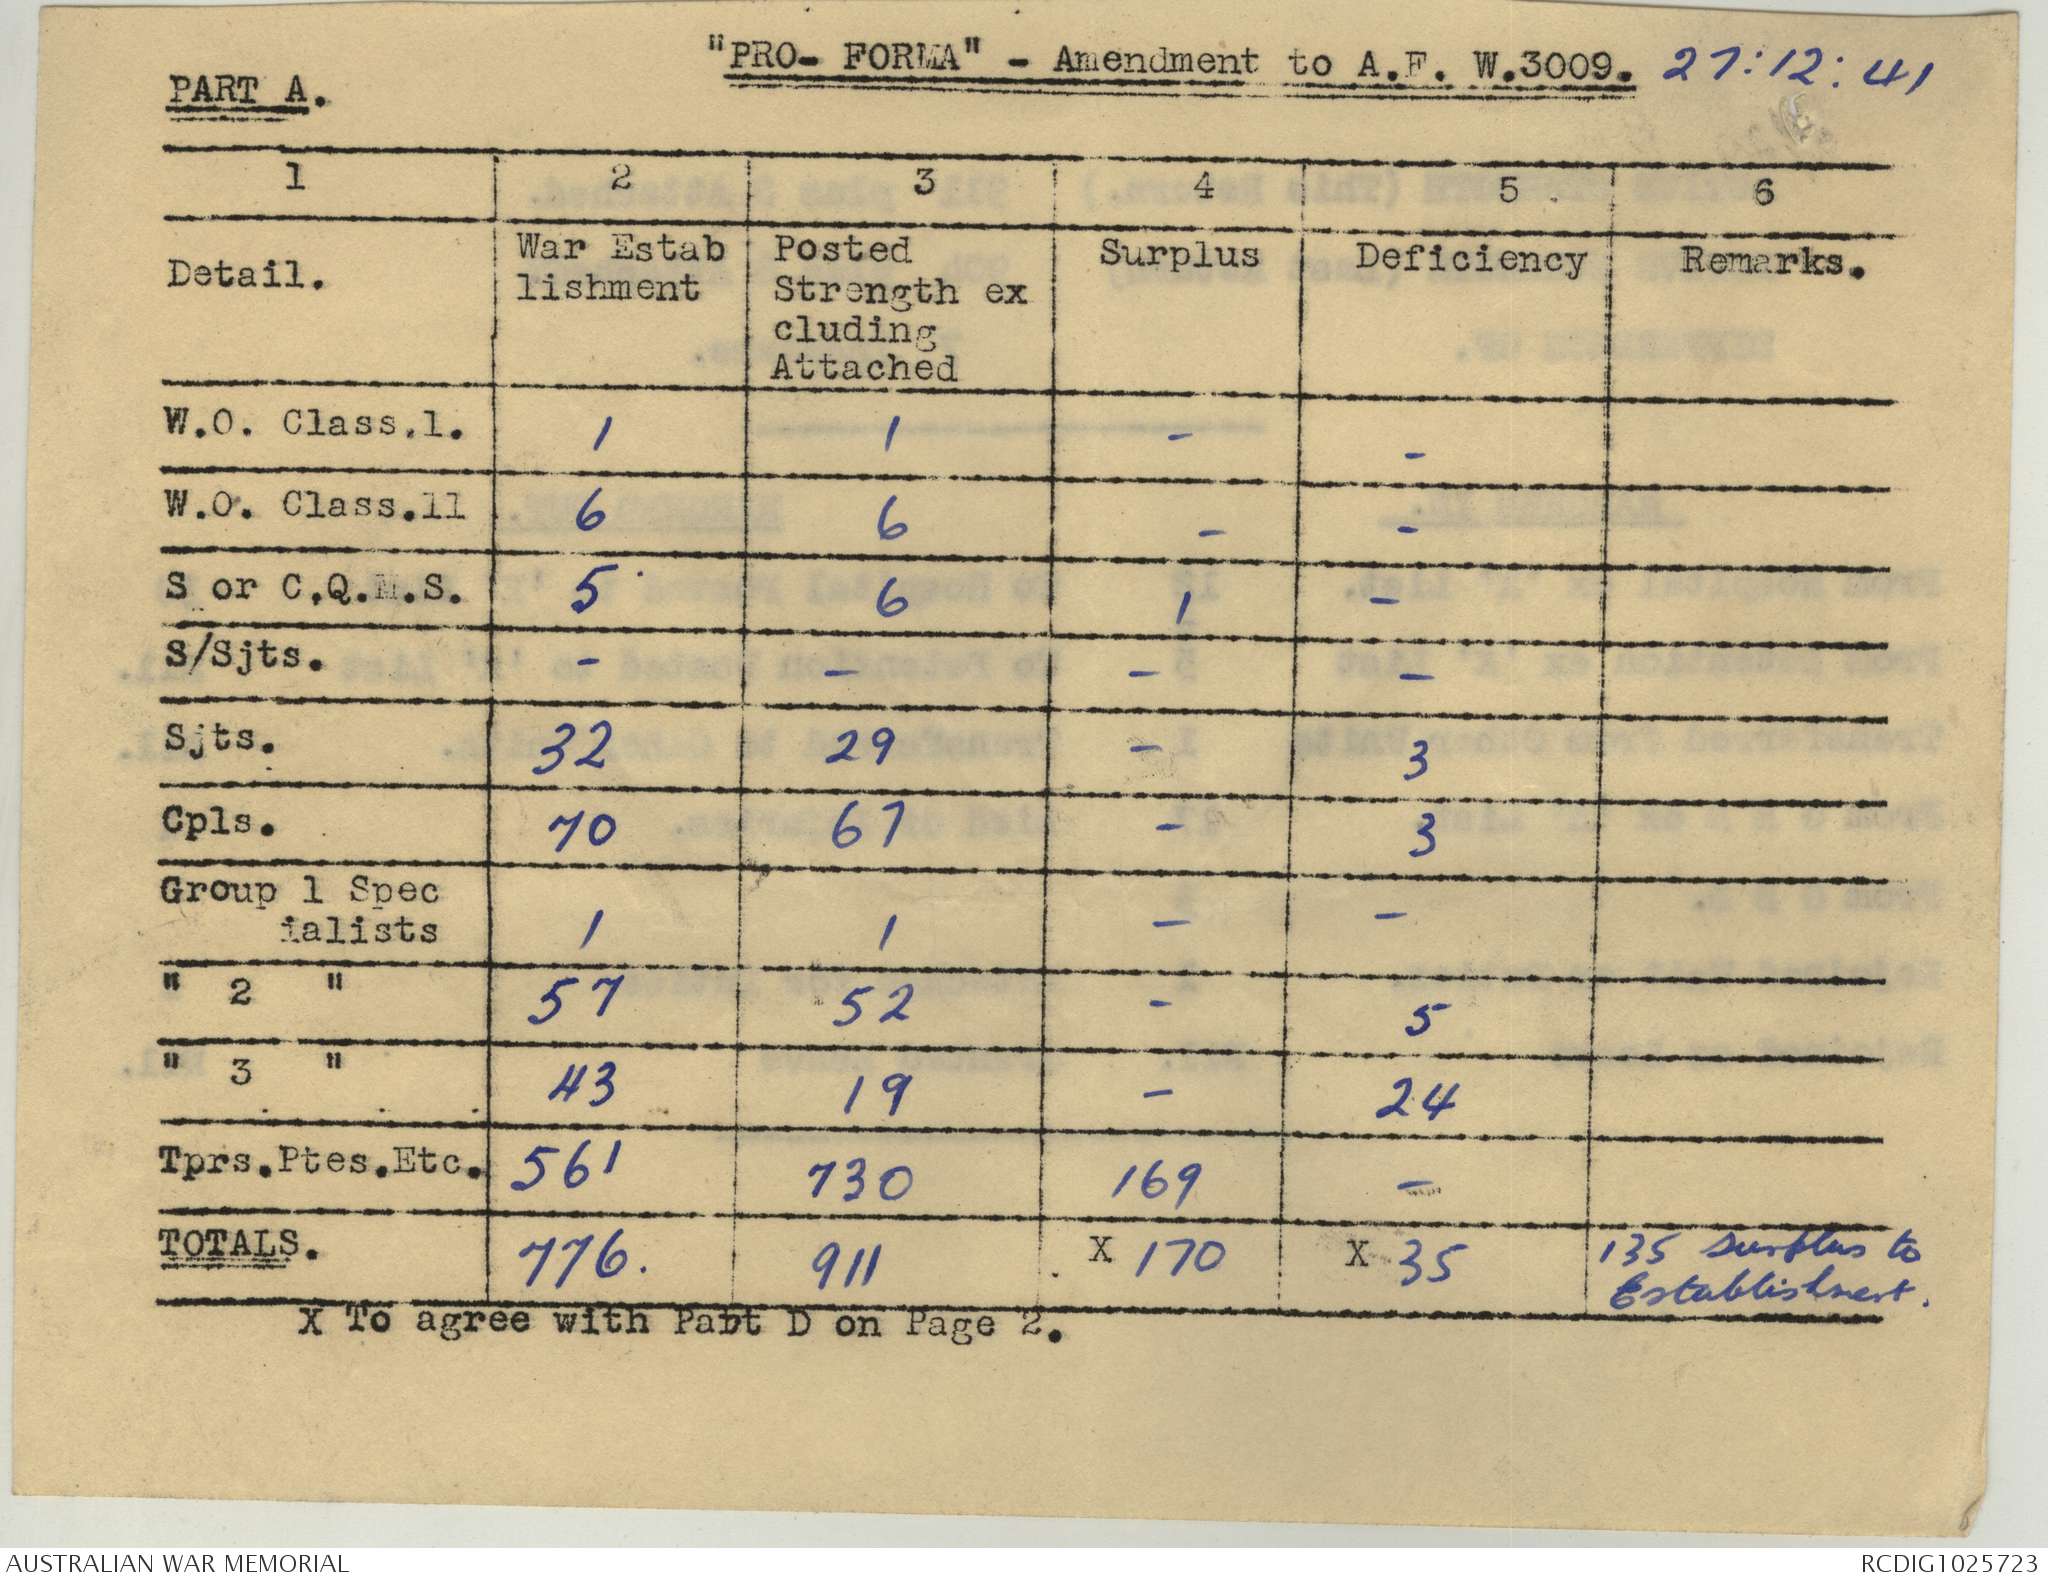 "PRO- FORMA" - Amendment to A.F. W.3009. 27:12:41
PART A.
1 2 3 4 5 6
Detail. War Estab Posted Surplus Deficiency Remarks.
lishment Strength ex
cluding
Attached
W.O. Class.1. 1 1 - -
W.O. Class.11 6 6 - -
S or C.Q.M.S. 5 6 1 -
S/Sjts. - - - -
Sjts. 32 29 - 3
Cpls. 70 67 - 3
Group 1 Spec
ialists 1 1 - -
" 2 " 57 52 - 5
" 3 " 43 19 - 24
Tprs.Ptes.Etc. 561 730 169 -
TOTALS. 776. 911 X 170 X 35 135 Surplus to
Establishment.
X To agree with Part D on Page 2.
AUSTRALIAN WAR MEMORIAL RCDIG1025723